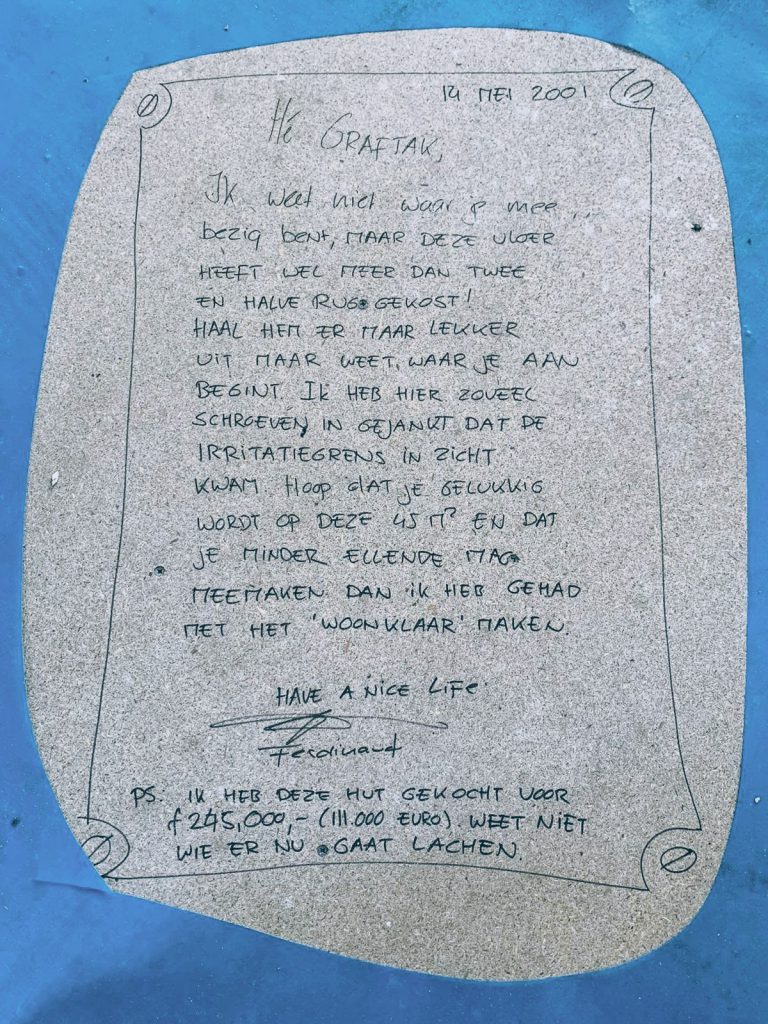 14 MEI 2001
Hé GRAFTAK,
Ik weet niet waar je mee...
bezig bent, MAAR DEZE VLOER
HEEFT WEL MEER DAN TWEE
EN HALVE RUG GEKOST!
HAAL HEM ER MAAR LEKKER
UIT MAAR WEET, WAAR JE AAN
BEGINT. IK HEB HIER ZOVEEL
SCHROEVEN IN GEJANKT DAT DE
IRRITATIEGRENS IN ZICHT
KWAM. HOOP dat je GELUKKIG
WORDT OP DEZE 45 M² EN DAT
JE MINDER ELLENDE MAG
MEEMAKEN DAN IK HEB GEHAD
MET HET 'WOONKLAAR' MAKEN.
HAVE A NICE LIFE.
Ferdinand
PS. IK HEB DEZE HUT GEKOCHT VOOR
ƒ 245,000,- (111.000 EURO) WEET NIET
WIE ER NU GAAT LACHEN.